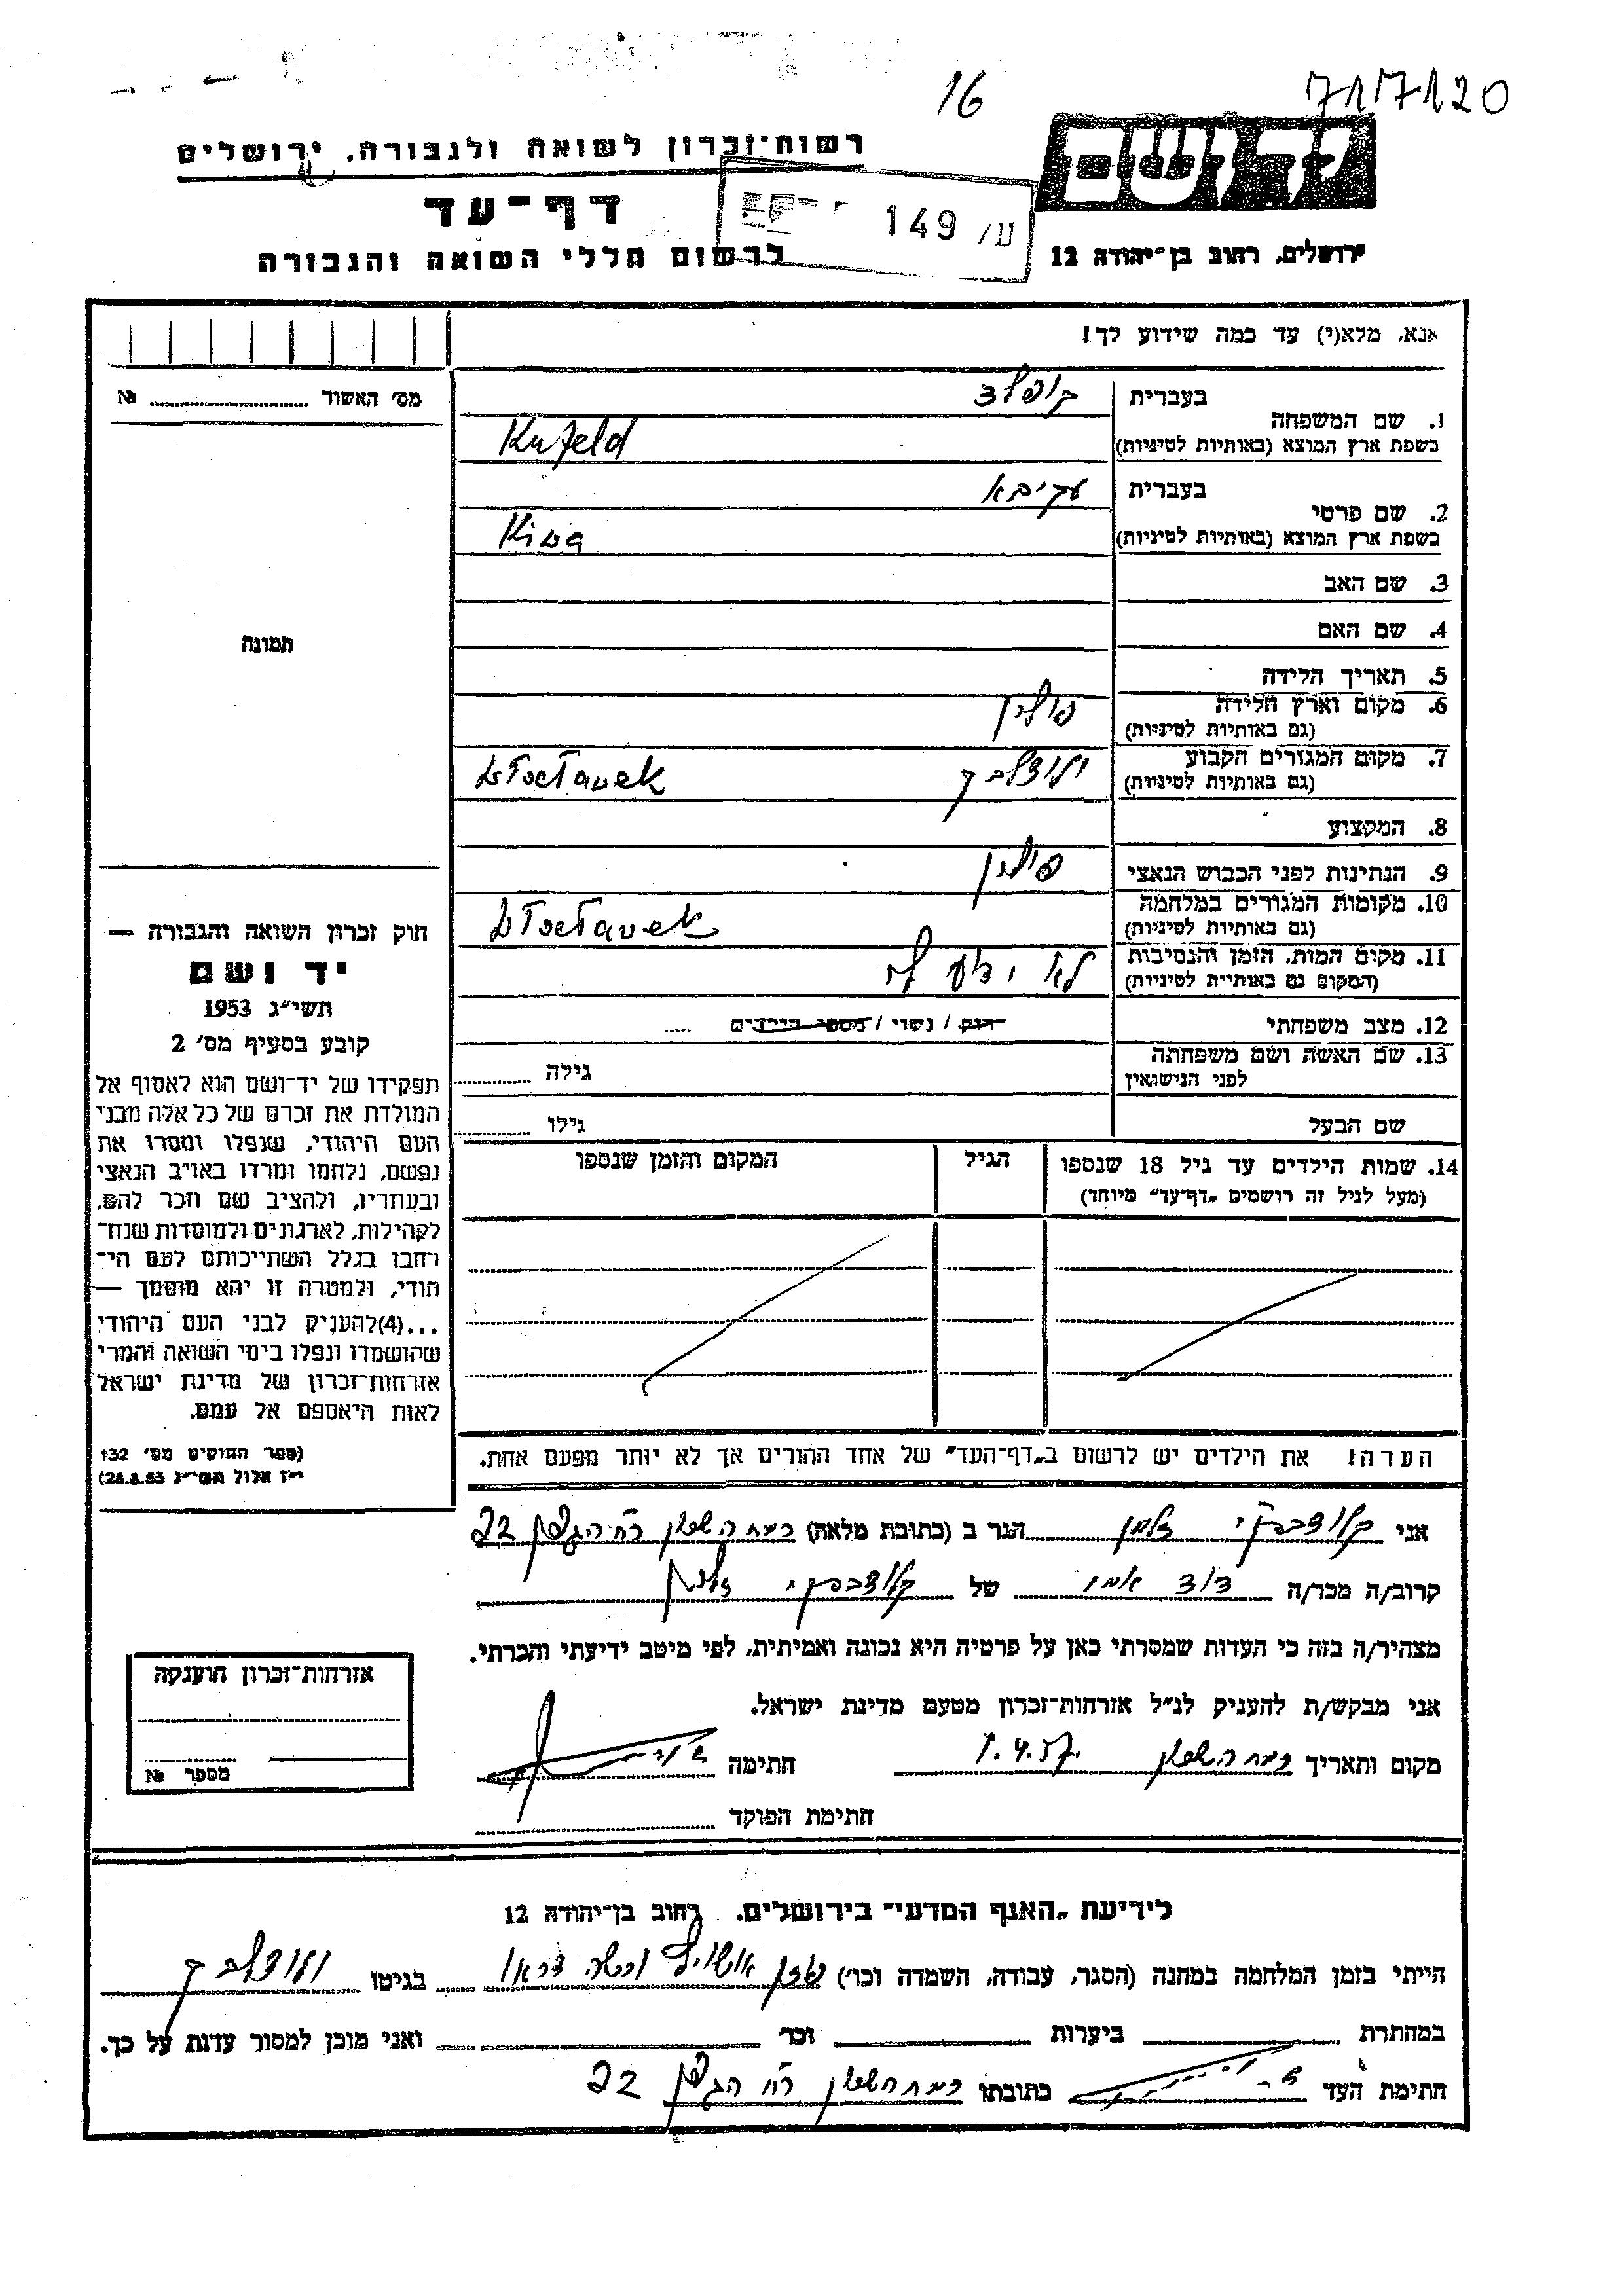 16
7171120
רשות-זכרון לשואה ולגבורה, ירושלים
יד ושם
דף-עד
149 /ע
לרשום חללי השואה והגבורה
ירושלים, רחוב בן-יהודה 12
אנא, מלא(י) עד כמה שידוע לך!
מס׳ האשור № 
בעברית קופלד
1. שם המשפחה
בשפת ארץ המוצא (באותיות לטיניות) Kufeld
בעברית עקיבא
2. שם פרטי
בשפת ארץ המוצא (באותיות לטיניות) Kiwa
3. שם האב
4. שם האם
תמונה
5. תאריך הלידה
6. מקום וארץ הלידה פולין
(גם באותיות לטיניות)
7. מקום המגורים הקבוע
(גם באותיות לטיניות)
8. המקצוע
9. הנתינות לפני הכבוש הנאצי פולין
10. מקומות המגורים במלחמה
(גם באותיות לטיניות)
11. מקום המות, הזמן והנסיבות לא ידוע לי
(המקום גם באותיות לטיניות)
12. מצב משפחתי רווק / נשוי / מספר הילדים
13. שם האשה ושם משפחתה גילה
לפני הנישואין
שם הבעל גילו
חוק זכרון השואה והגבורה —
יד ושם
תשי״ג 1953
קובע בסעיף מס׳ 2
תפקידו של יד-ושם הוא לאסוף אל
המולדת את זכרם של כל אלה מבני
העם היהודי, שנפלו ומסרו את
נפשם, נלחמו ומרדו באויב הנאצי
ובעוזריו, ולהציב שם וזכר להם,
לקהילות, לארגונים ולמוסדות שנח-
רחבו בגלל השתייכותם לעם הי-
הודי, ולמטרה זו יהא מוסמך —
...(4)להעניק לבני העם היהודי
שהושמדו ונפלו בימי השואה והמרי
אזרחות-זכרון של מדינת ישראל
לאות היאספם אל עמם.
(ספר החוקים מס׳ 132
י״ז אלול תשי״ג 28.8.53)
14. שמות הילדים עד גיל 18 שנספו הגיל המקום והזמן שנספו
(מעל לגיל זה רושמים „דף-עד״ מיוחד)
הערה! את הילדים יש לרשום ב„דף-העד״ של אחד ההורים אך לא יותר מפעם אחת.
אני זלמן הגר ב (כתובת מלאה) רמת השרון רח׳ הגפן 22
קרוב/ה מכר/ה של
מצהיר/ה בזה כי העדות שמסרתי כאן על פרטיה היא נכונה ואמיתית, לפי מיטב ידיעתי והכרתי.
אני מבקש/ת להעניק לנ״ל אזרחות-זכרון מטעם מדינת ישראל.
מקום ותאריך רמת השרון 1.4.57 חתימה
חתימת הפוקד
אזרחות-זכרון הוענקה
מספר №
לידיעת „האגף המדעי״ בירושלים, רחוב בן-יהודה 12
הייתי בזמן המלחמה במחנה (הסגר, עבודה, השמדה וכו׳) בגיטו
במחתרת ביערות וכו׳ ואני מוכן למסור עדות על כך.
חתימת העד כתובתו רמת השרון רח׳ הגפן 22